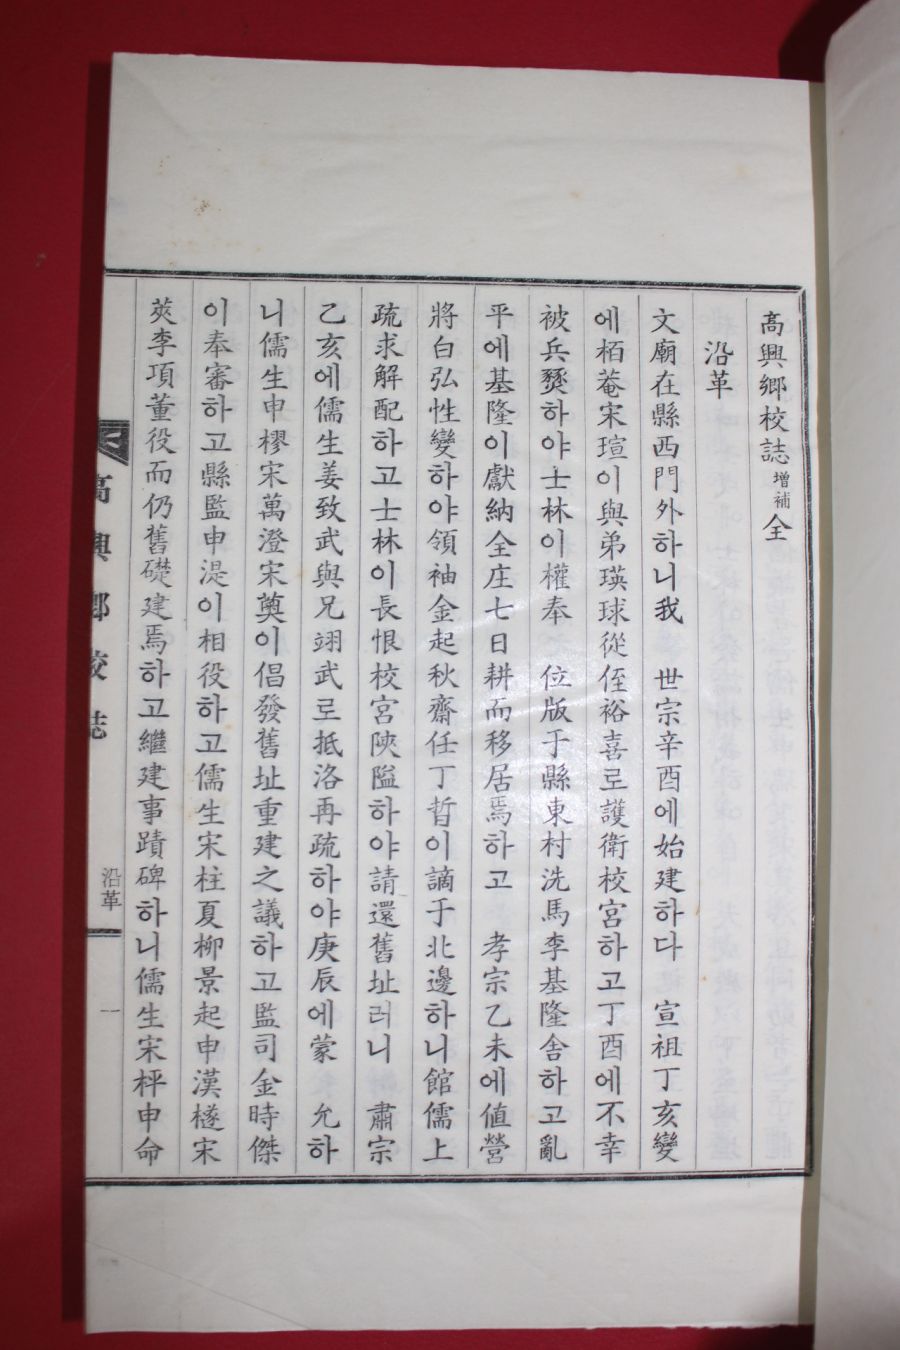 高興鄕校誌增補全
沿革
文廟在縣西門外하니我 世宗辛酉에始建하다 宣祖丁亥變
에栢菴宋瑄이與弟瑛球從侄裕喜로護衛校宮하고丁酉에不幸
被兵燹하야士林이權奉 位版于縣東村洗馬李基隆舍하고亂
平에基隆이獻納全庄七日耕而移居焉하고 孝宗乙未에値營
將白弘性變하야領袖金起秋齋任丁晢이謫于北邊하니館儒上
疏求解配하고士林이長恨校宮陜隘하야請還舊址러니 肅宗
乙亥에儒生姜致武與兄翊武로抵洛再疏하야庚辰에蒙 允하
니儒生申樛宋萬澄宋奠이倡發舊址重建之議하고監司金時傑
이奉審하고縣監申湜이相役하고儒生宋柱夏柳景起申漢檖宋
莢李項董役而仍舊礎建焉하고繼建事蹟碑하니儒生宋枰申命
高興鄕校誌
沿革
一